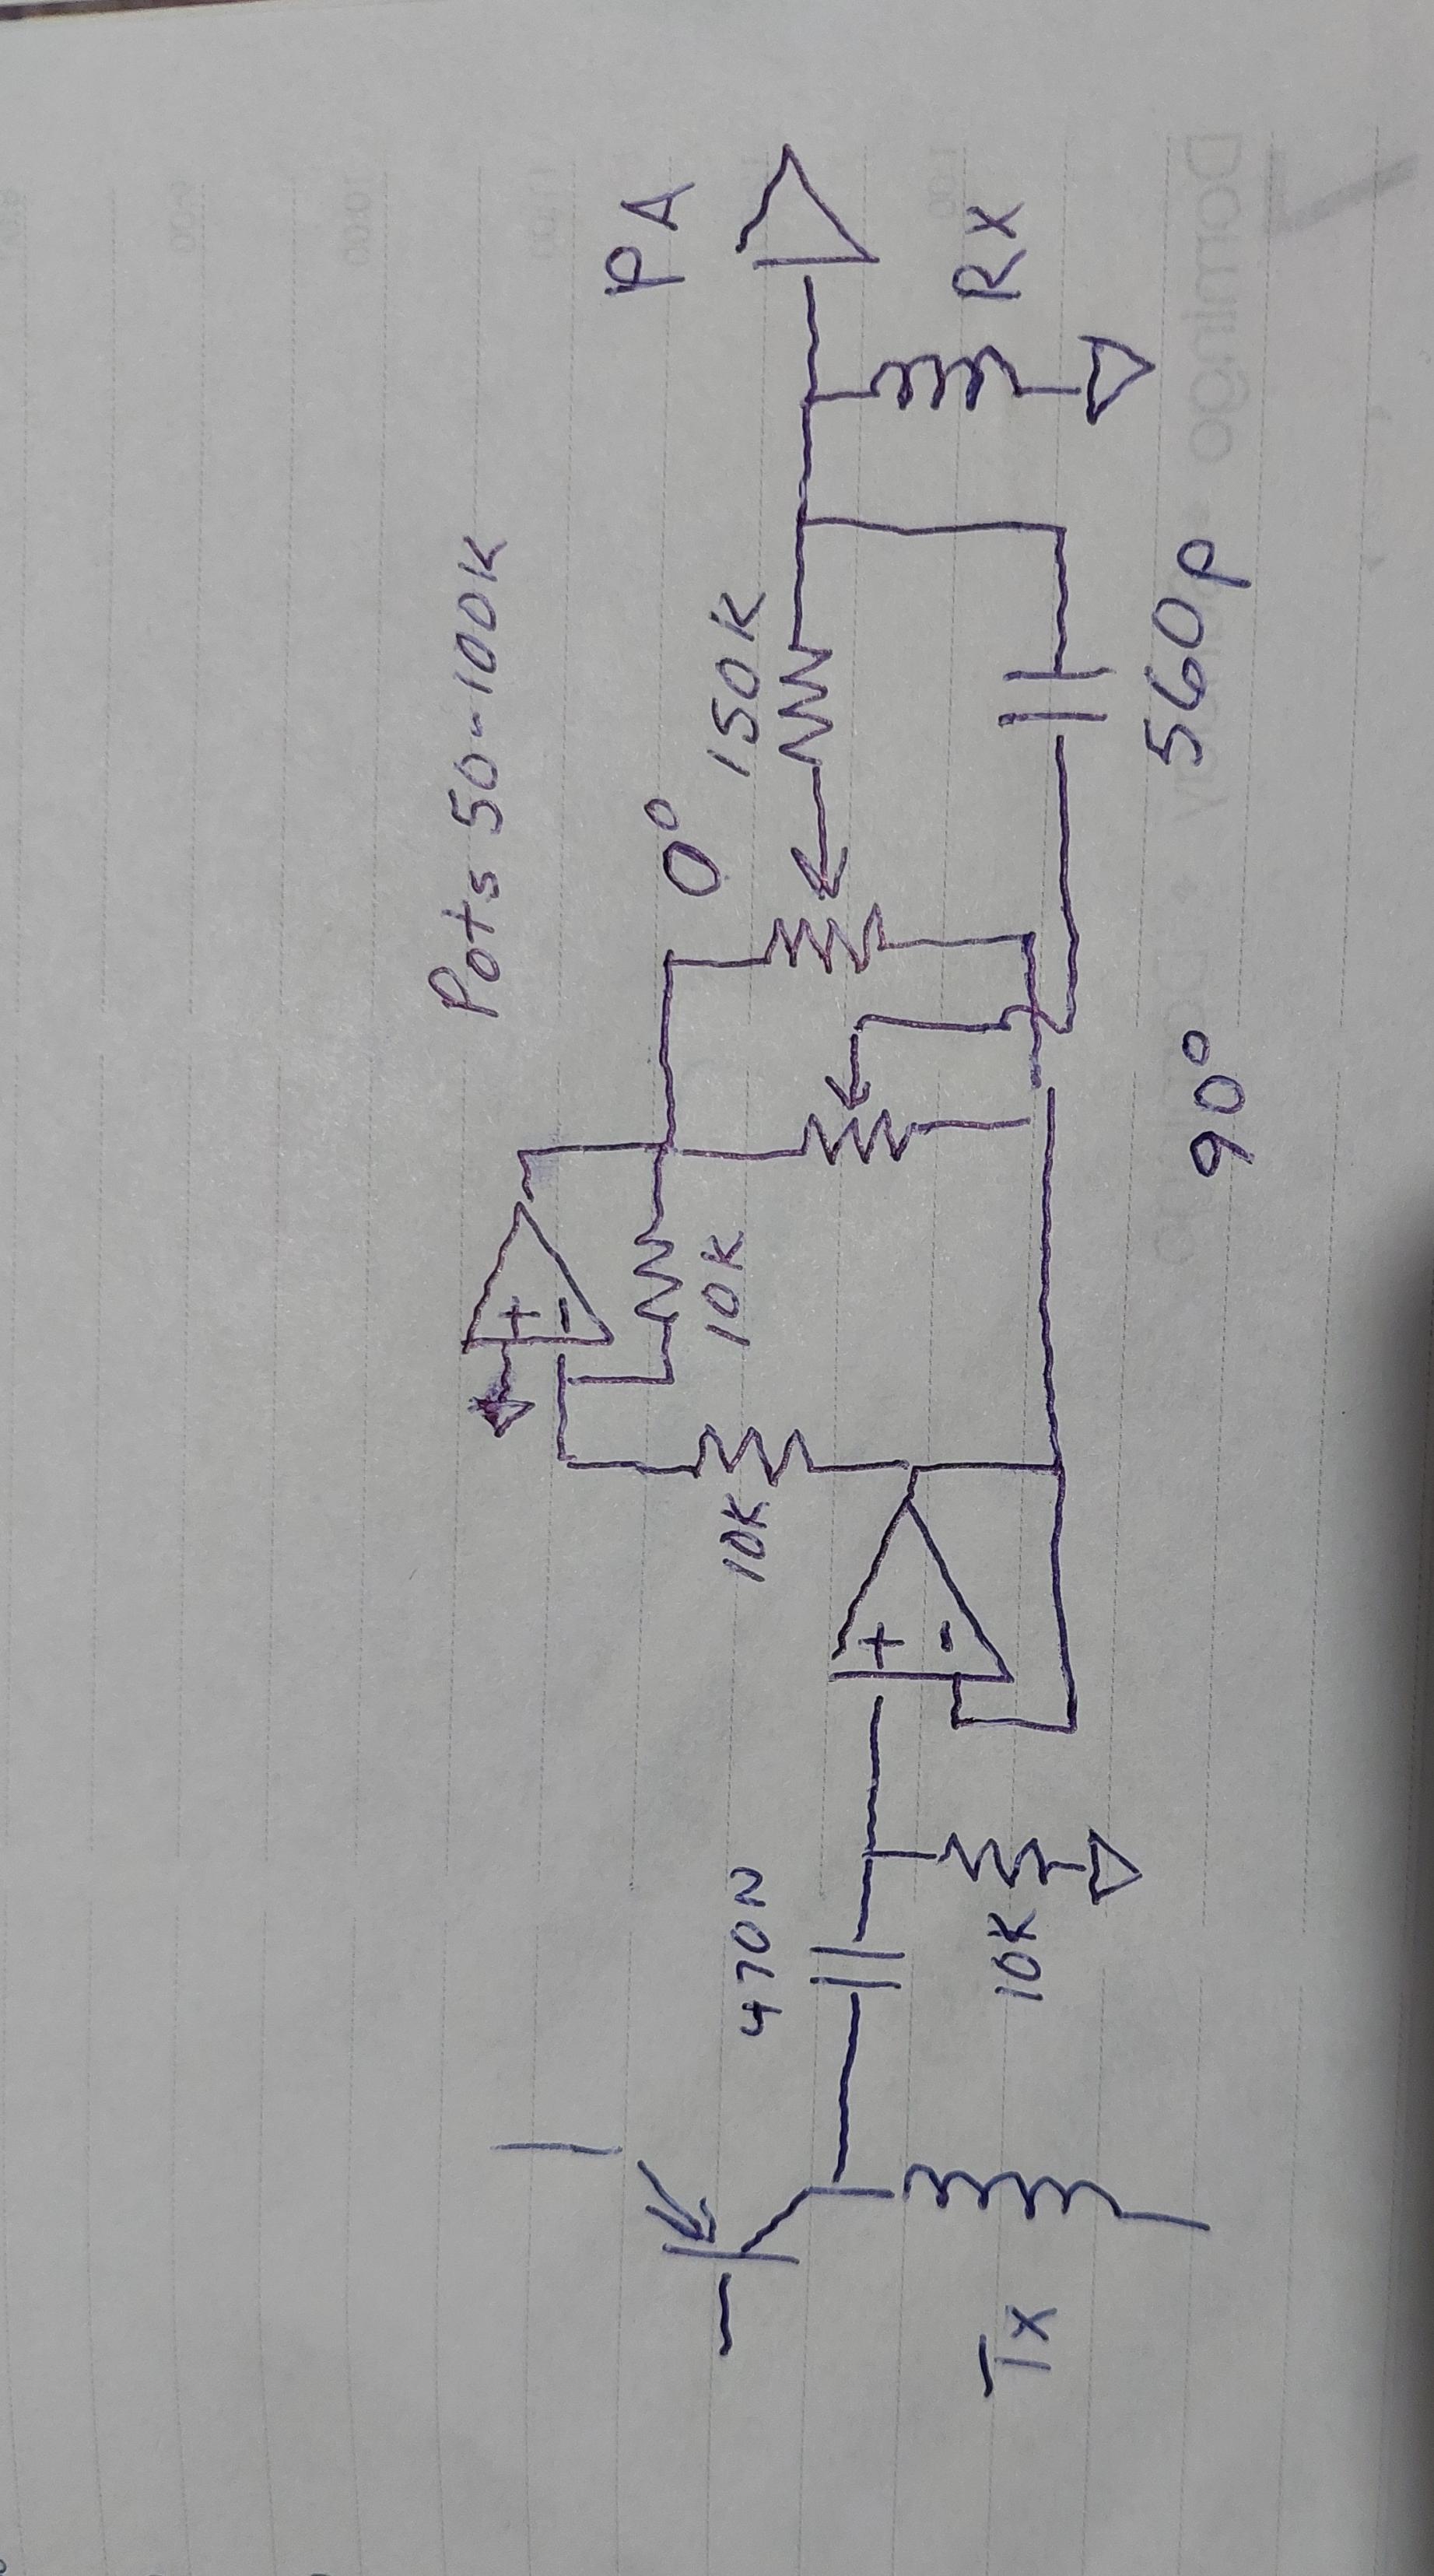 Pots 50-100K
PA
0°
150K
10K
10K
+
-
+
-
470N
Rx
10K
Tx
560p
90°